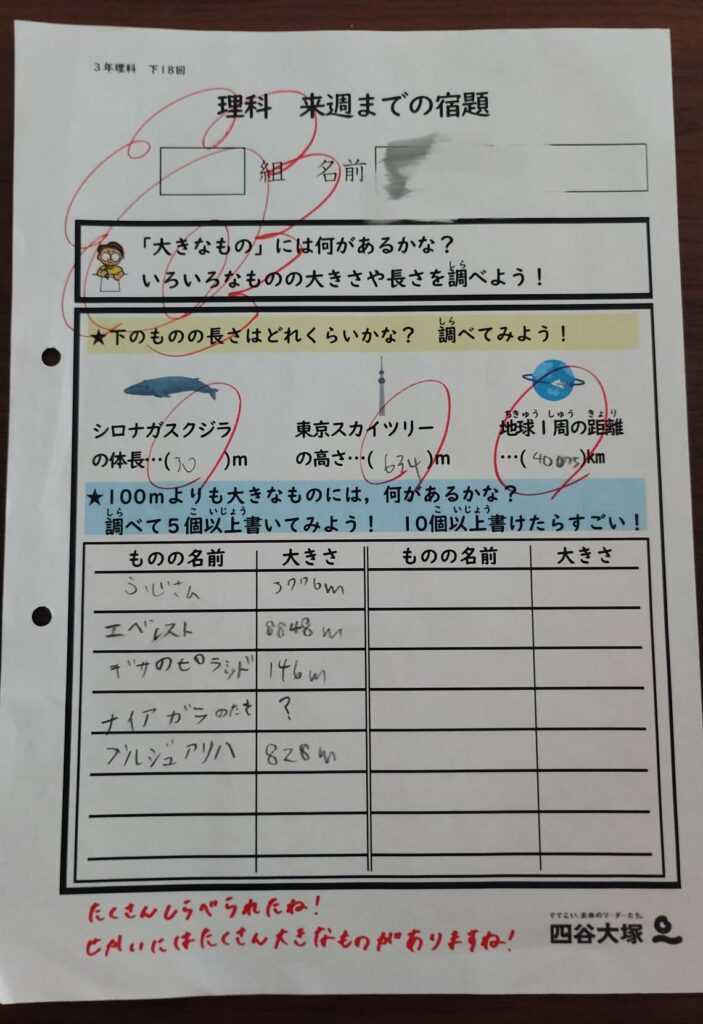 3年理科 下18回
理科 来週までの宿題
組 名前
「大きなもの」には何があるかな?
いろいろなものの大きさや長さを調べよう!
しら
★下のものの長さはどれくらいかな? 調べてみよう!
しら
シロナガスクジラ
の体長…(30)m
東京スカイツリー
の高さ…(634)m
ちきゅう しゅう きょり
地球1周の距離
…(40075)km
★100mよりも大きなものには,何があるかな?
しら こ いじょう こ いじょう
調べて5個以上書いてみよう! 10個以上書けたらすごい!
ものの名前 大きさ ものの名前 大きさ
ふじさん 3776m
エベレスト 8848m
ギザのピラミッド 146m
ナイアガラのたき ?
ブルジュアリハ 828m
たくさんしらべられたね!
せかいにはたくさん大きなものがありますね!
でてこい、未来のリーダーたち。
四谷大塚